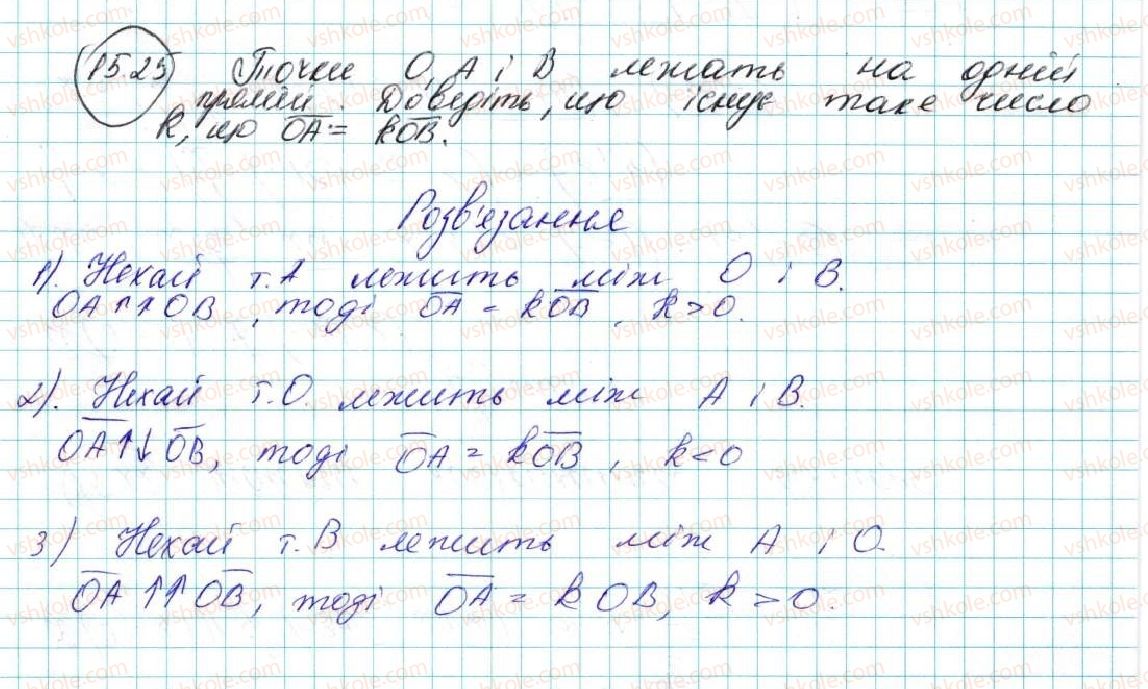 15.25 Точки O, A і B лежать на одній
прямій. Доведіть, що існує таке число
k, що O̅A̅ = kO̅B̅.
Розв'язання
1). Нехай т. A лежить між O і B.
OA↑↑OB, тоді O̅A̅ = kO̅B̅, k>0.
2). Нехай т. O. лежить між A і B.
O̅A̅↑↓O̅B̅, тоді O̅A̅ = kO̅B̅, k<0
3) Нехай т. B лежить між A і O.
O̅A̅↑↑O̅B̅, тоді O̅A̅ = kOB, k>0.
vshkole.com